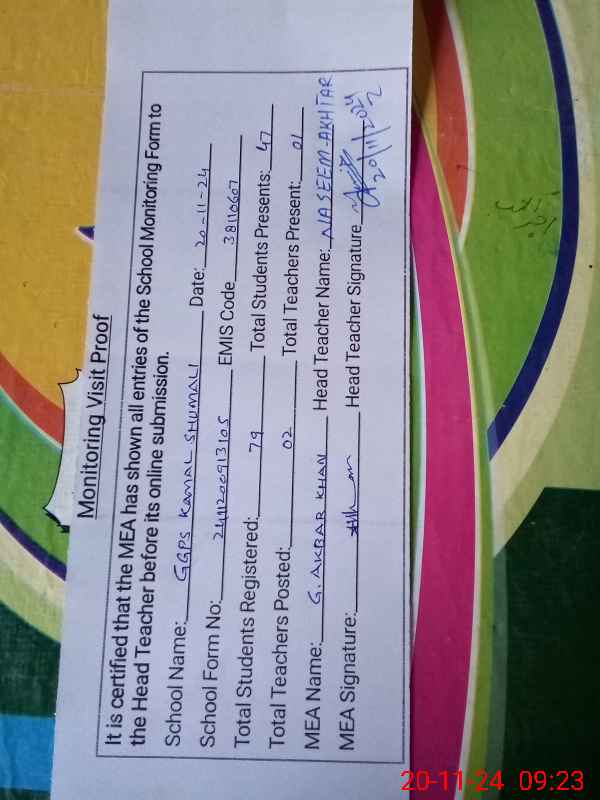 Monitoring Visit Proof
It is certified that the MEA has shown all entries of the School Monitoring Form to
the Head Teacher before its online submission.
School Name: GGPS KAMAL SHUMALI Date: 20-11-24
School Form No: 2411200913105 EMIS Code 38110607
Total Students Registered: 79 Total Students Presents: 47
Total Teachers Posted: 02 Total Teachers Present: 01
MEA Name: G. AKBAR KHAN Head Teacher Name: NASEEM AKHTAR
MEA Signature: Head Teacher Signature
20/11/2024
20-11-24 09:23